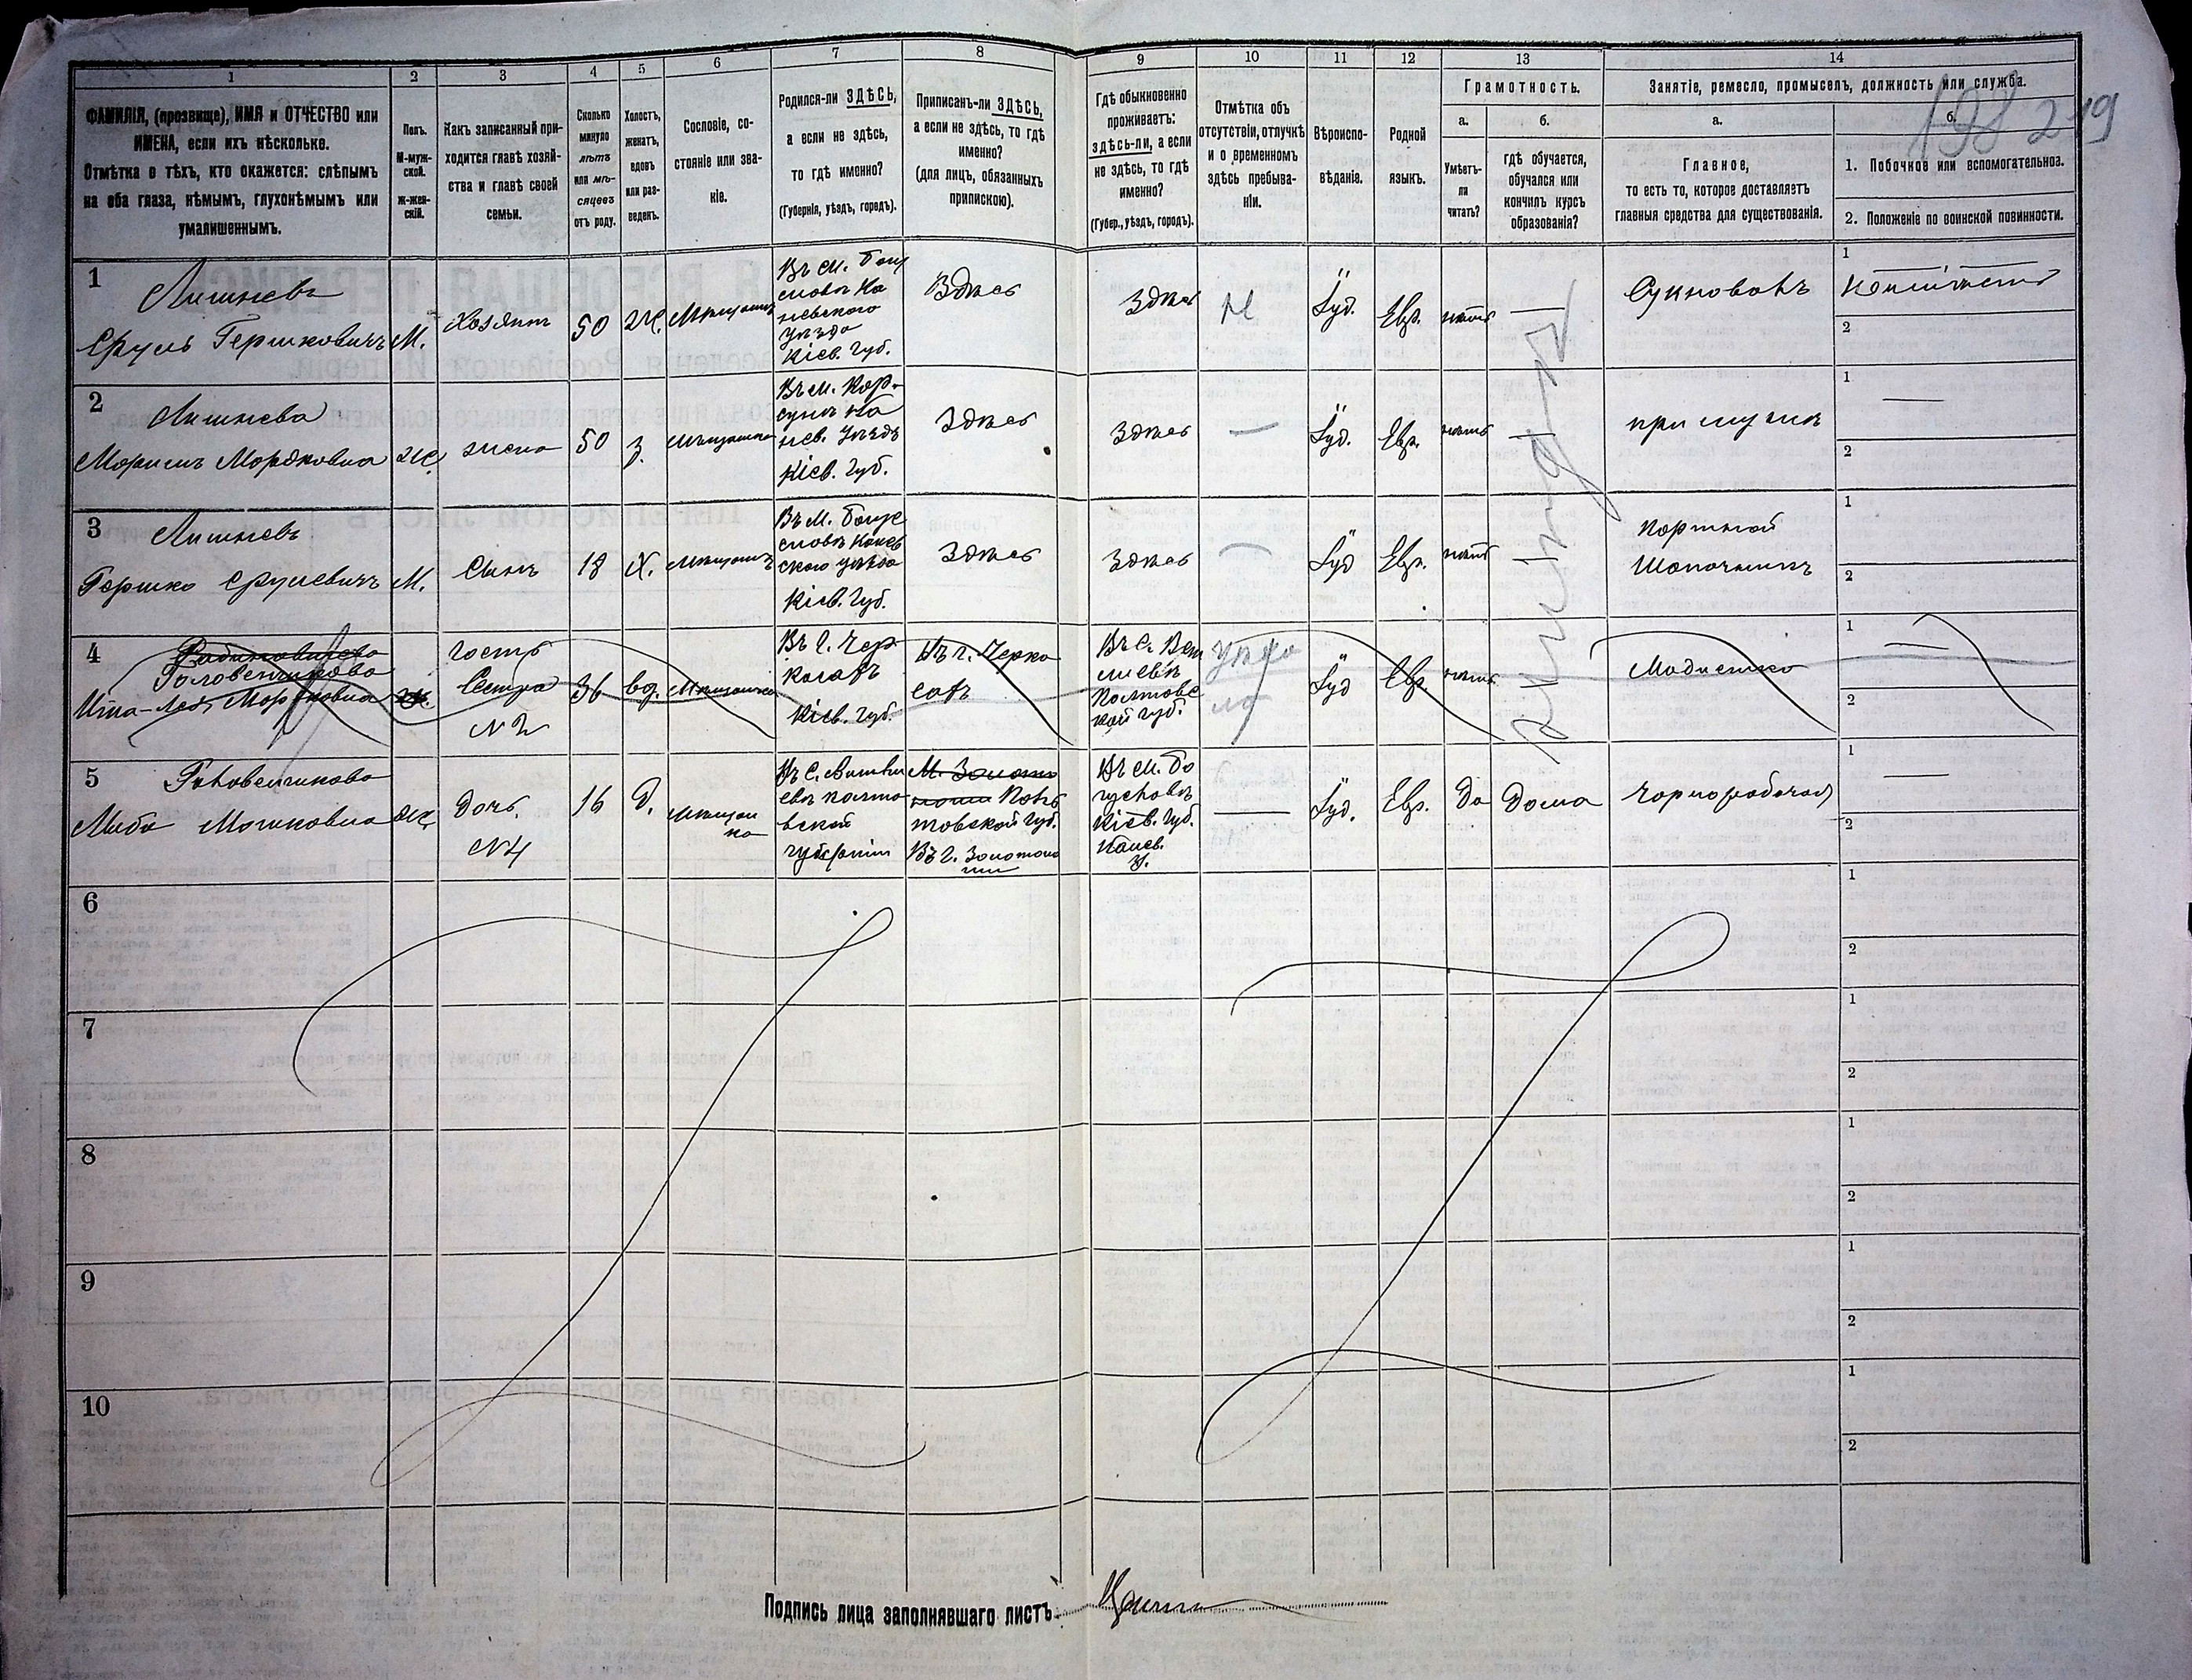 1
2
3
4
5
6
7
8
9
10
11
12
13
14
ФАМИЛІЯ, (прозвище), ИМЯ и ОТЧЕСТВО или
ИМЕНА, если ихъ нѣсколько.
Отмѣтка о тѣхъ, кто окажется: слѣпымъ
на оба глаза, нѣмымъ, глухонѣмымъ или
умалишеннымъ.
Полъ.
М-муж-
ской.
ж-жен-
скій.
Какъ записанный при-
ходится главѣ хозяй-
ства и главѣ своей
семьи.
Сколько
минуло
лѣтъ
или мѣ-
сяцевъ
отъ роду.
Холостъ,
женатъ,
вдовъ
или раз-
веденъ.
Сословіе, со-
стояніе или зва-
ніе.
Родился-ли ЗДѢСЬ,
а если не здѣсь,
то гдѣ именно?
(Губернія, уѣздъ, городъ).
Приписанъ-ли ЗДѢСЬ,
а если не здѣсь, то гдѣ
именно?
(для лицъ, обязанныхъ
припискою).
Гдѣ обыкновенно
проживаетъ:
здѣсь-ли, а если
не здѣсь, то гдѣ
именно?
(Губер., уѣздъ, городъ).
Отмѣтка объ
отсутствіи, отлучкѣ
и о временномъ
здѣсь пребыва-
ніи.
Вѣроиспо-
вѣданіе.
Родной
языкъ.
Грамотность.
а.
Умѣетъ-
ли
читать?
б.
гдѣ обучается,
обучался или
кончилъ курсъ
образованія?
Занятіе, ремесло, промыселъ, должность или служба.
а.
Главное,
то есть то, которое доставляетъ
главныя средства для существованія.
б.
1. Побочное или вспомогательное.
2. Положеніе по воинской повинности.
198 219
1
Лишневъ
Сруль Гершковичъ
М.
Хозяинъ
50
Ж.
Мѣщанинъ
Въ м. Богу
славѣ Ка
невского
Уѣзда
Кіев. Губ.
Здѣсь
Здѣсь
Іуд.
Евр.
нѣтъ
—
1
2
2
Лишнева
Мордковна
Ж
жена
50
З.
Мѣщанка
Въ м. Кор-
сунѣ Ка
нев. Уѣздѣ
Кіев. Губ.
Здѣсь
Здѣсь
—
Іуд.
Евр.
нѣтъ
—
при мужѣ
1
—
2
3
Лишневъ
Гершко Срулевичъ
М.
Сынъ
18
Х.
Мѣщанинъ
Въ м. Богу
славѣ Канев
ского уѣзда
Кіев. Губ.
Здѣсь
Здѣсь
—
Іуд
Евр.
нѣтъ
—
Портной
Шапочникъ
1
2
4
Головенчикова
Мордковна
Ж.
Гость
Сестра
N 2
36
вд.
Мѣщанка
Въ г. Чер
касахъ
Кіев. Губ.
Въ г. Черка
сахъ
Полтавс
кой губ.
Іуд
Евр.
нѣтъ
—
Модистка
1
—
2
5
Головенчикова
Либа Мошковна
Ж.
дочь.
N 4
16
д.
Мѣщан
ка
полта
вской
губерніи
Пол
тавской губ.
Въ г. Золотоно
ши
Въ м. Бо
гуславѣ
Кіев. Губ.
Канев.
у.
—
Іуд.
Евр.
да
дома
Чернорабочая
1
—
2
6
1
2
7
1
2
8
1
2
9
1
2
10
1
2
Подпись лица заполнявшаго листъ